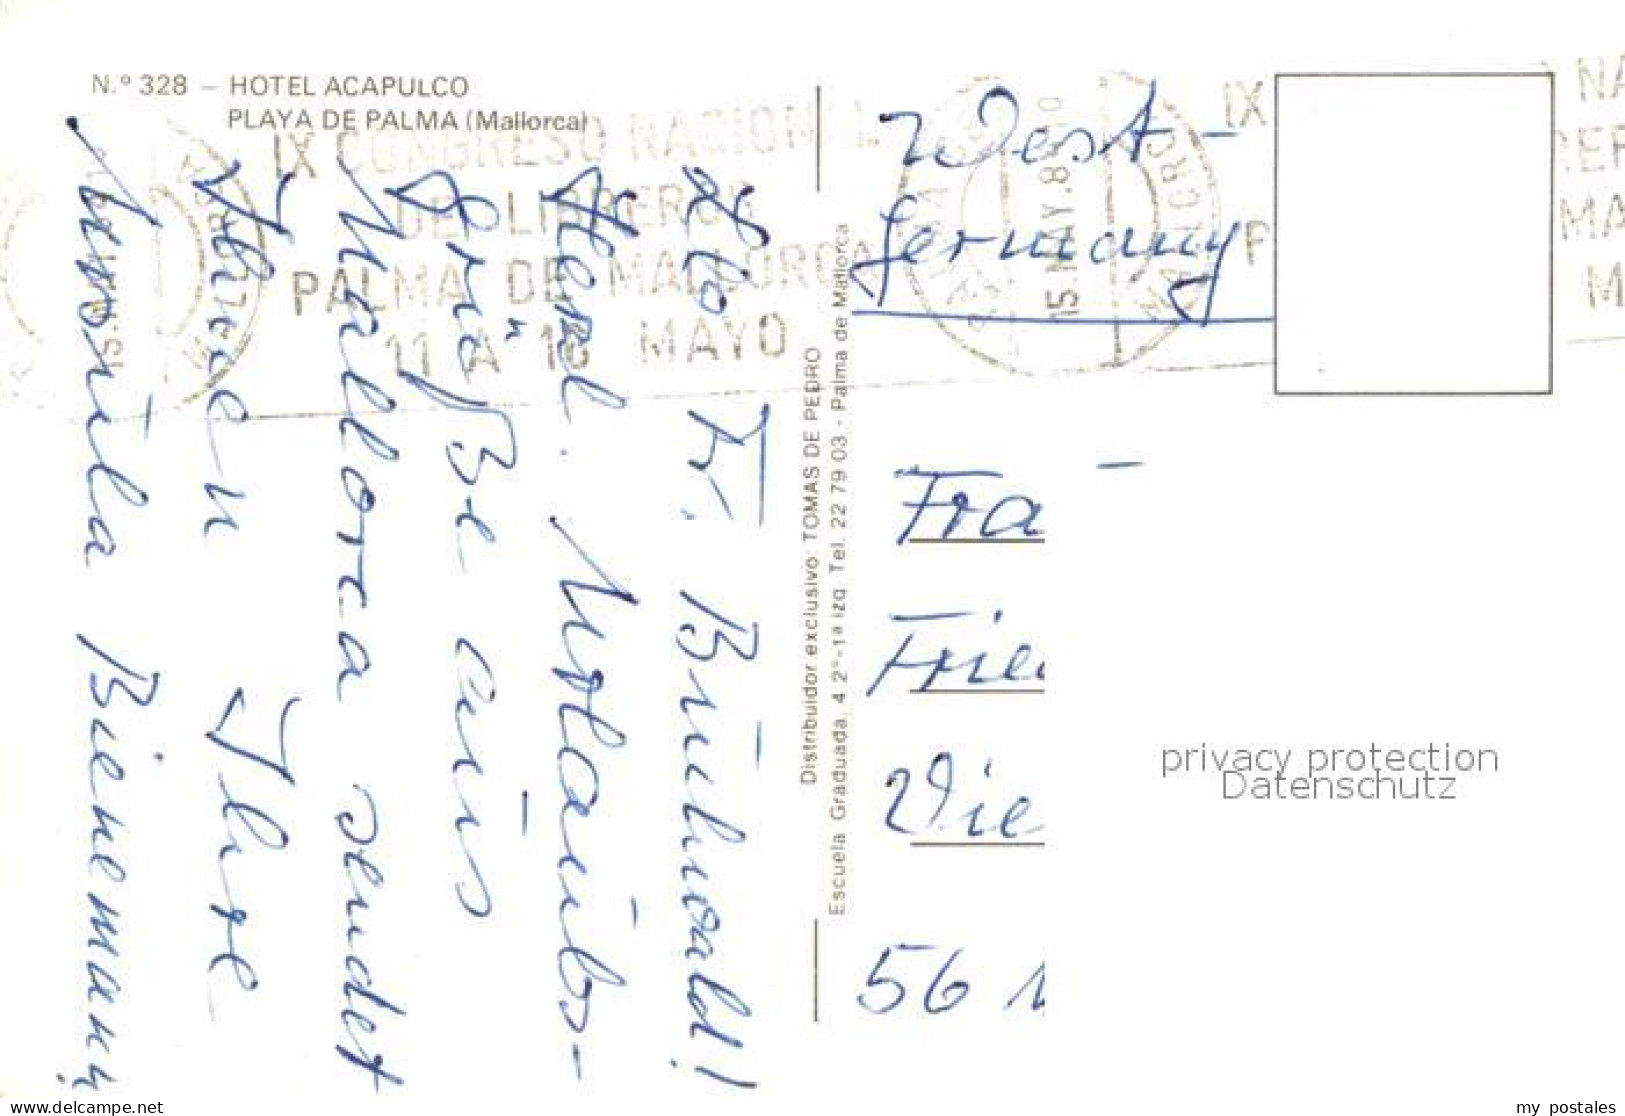 N.º 328 – HOTEL ACAPULCO
PLAYA DE PALMA (Mallorca)
IX CONGRESO NACIONAL
DE LIBREROS
PALMA DE MALLORCA
11 A 16 MAYO
Lb. Fr. Brühwald!
Herzl. Urlaubs-
grüße aus
Mallorca sendet
Ihnen Ihre
Monika Bienemann
Distribuidor exclusivo: TOMAS DE PEDRO
Escuela Graduada, 4 2º-1ª izq. Tel. 22 79 03 - Palma de Mallorca
15 MAY.8
West-
Germany
Fra
Frie
Vie
56
IX
privacy protection
Datenschutz
delcampe.net
my_postales